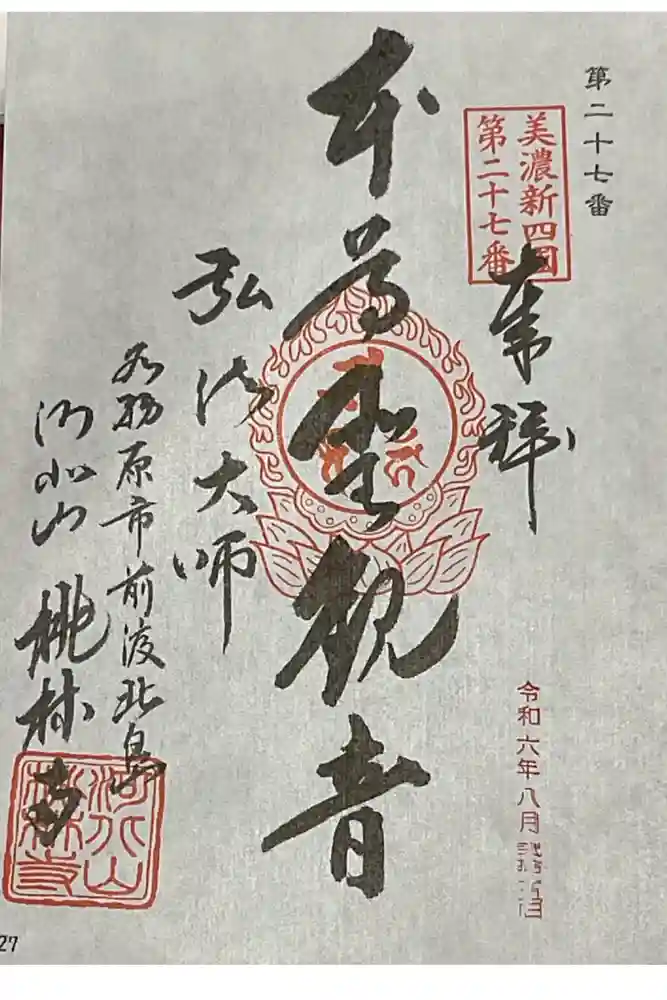 第二十七番
美濃新四国
第二十七番
奉拝
令和六年八月
本尊聖観音
弘法大師
各務原市前渡北島
河北山 桃林寺
27